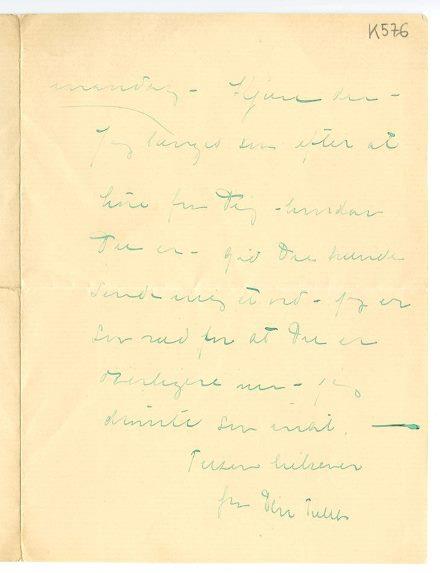 K576
mandag – Kjære du –
Jeg længes sån efter at
høre fra Dig – hvordan
Du er – gid Du kunde
sende mig et ord – Jeg er
sån ræd for at Du er
dårligere nu – jeg
drømte sån inat.
Tusen hilsener
fra Din Tulla